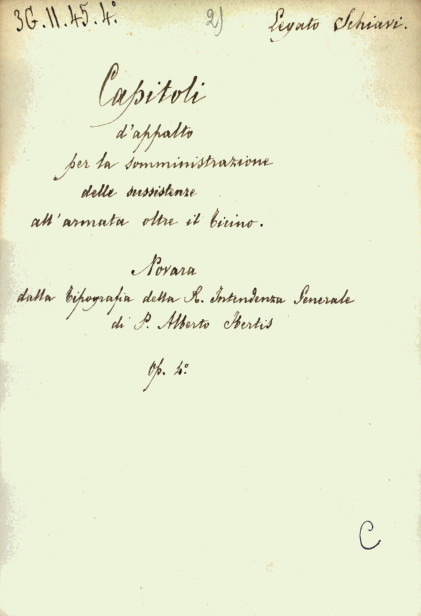 3G.II.45.4°
2)
Legato Schiavi.
Capitoli
d'appalto
per la somministrazione
delle sussistenze
all'armata oltre il Ticino.
Novara
dalla Tipografia della R. Intendenza Generale
di P. Alberto Ibertis
Op. 4°
C